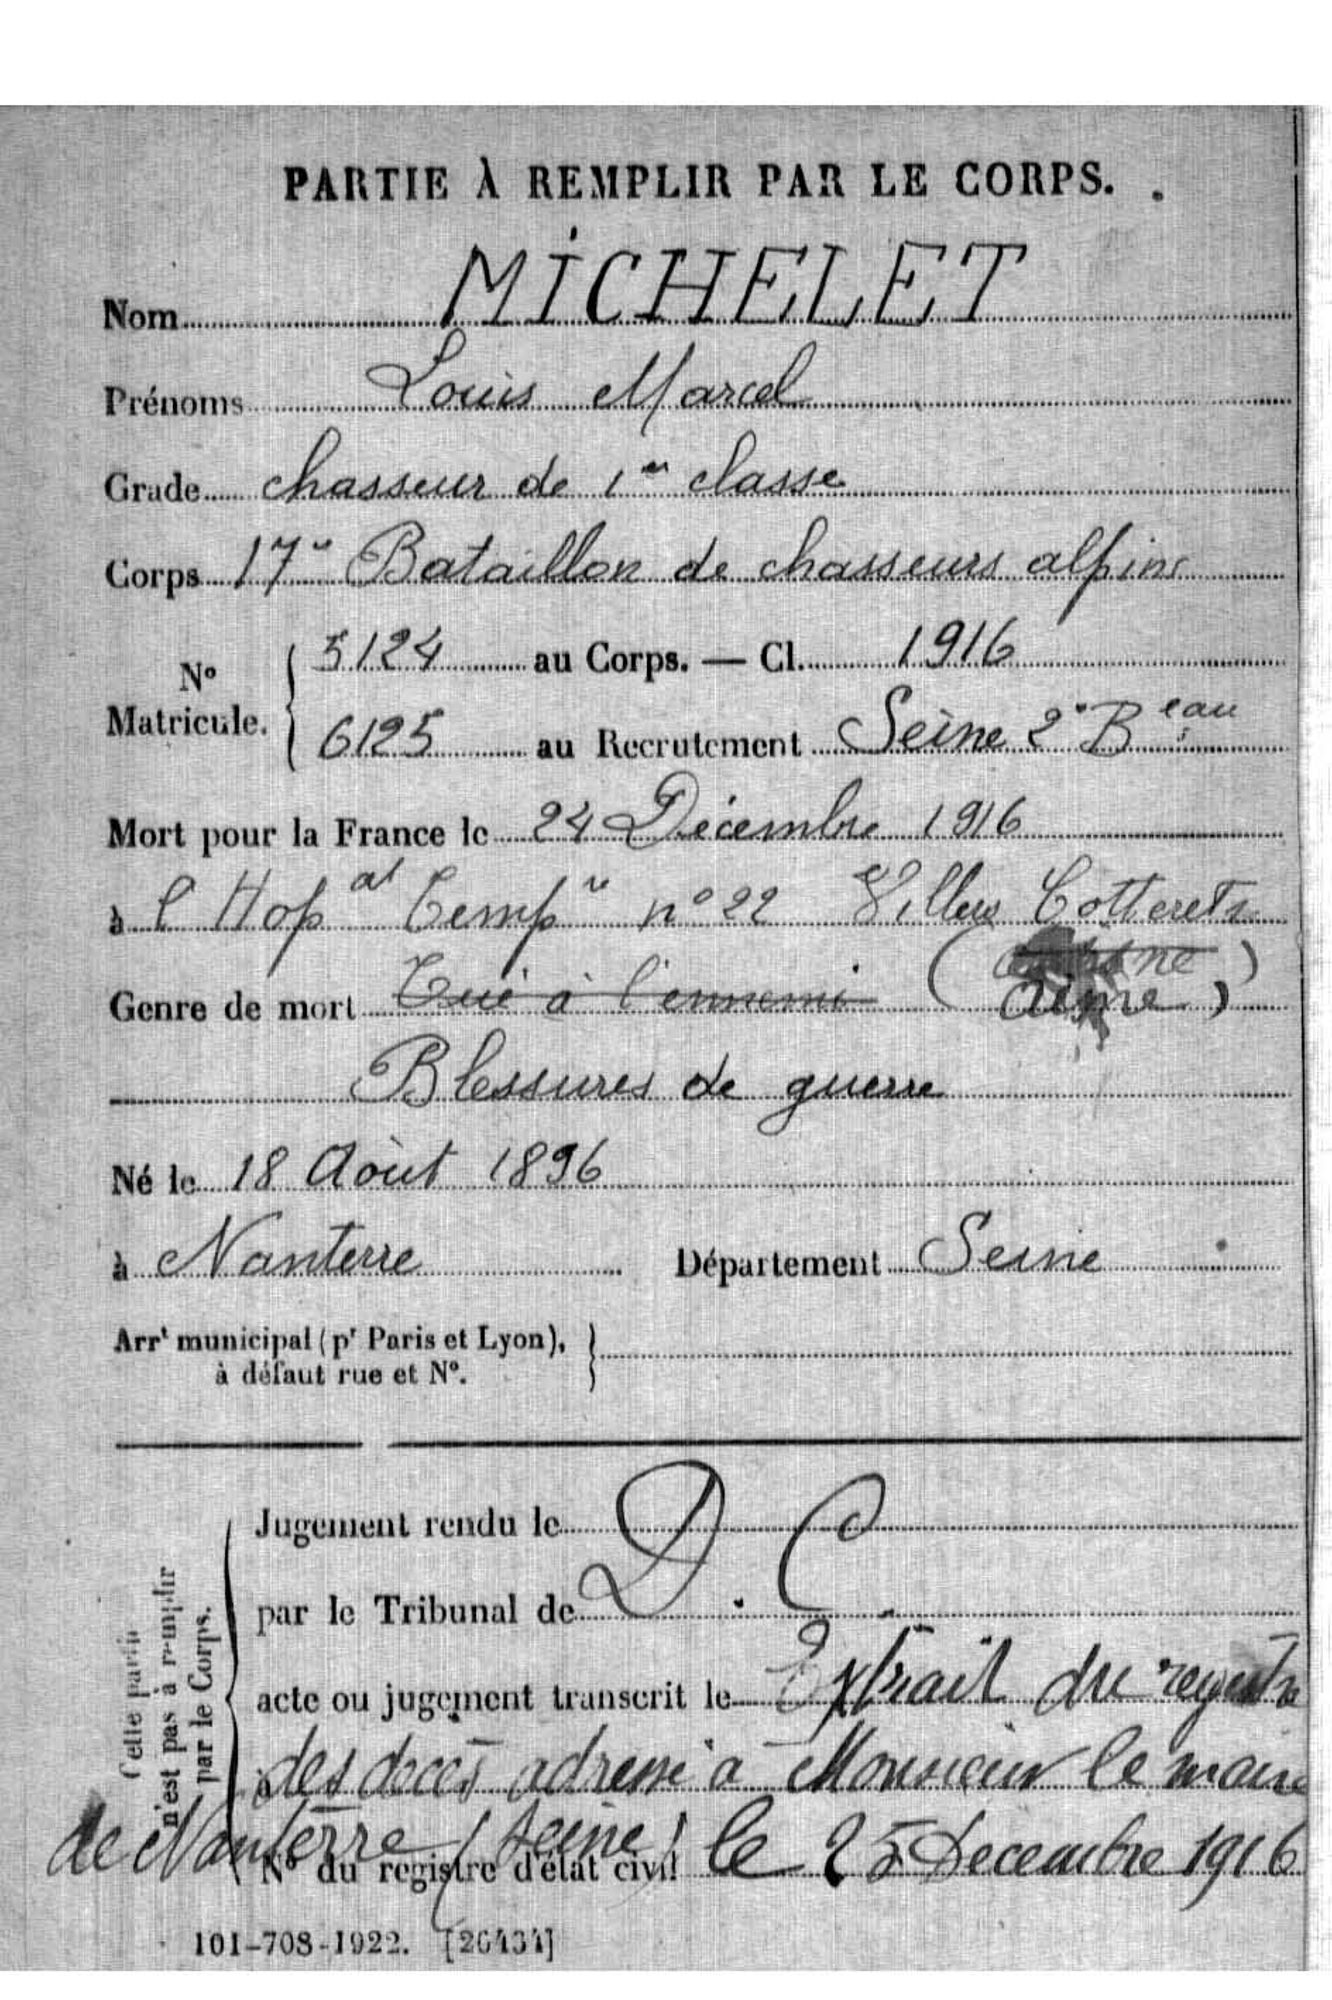 PARTIE À REMPLIR PAR LE CORPS.
Nom MICHELET
Prénoms Louis Marcel
Grade chasseur de 1re classe
Corps 17e Bataillon de chasseurs alpins
No Matricule. { 5124 au Corps. — Cl. 1916
6125 au Recrutement Seine 2e Beau
Mort pour la France le 24 Décembre 1916
à l'Hopal Tempre no 22 Villers Cotterets
(Aisne)
Genre de mort Tué à l'ennemi (Aisne)
Blessures de guerre
Né le 18 Août 1896
à Nanterre Département Seine
Arrt municipal (pr Paris et Lyon),
à défaut rue et No.
Cette partie n'est pas à remplir par le Corps.
Jugement rendu le D.C.
par le Tribunal de
acte ou jugement transcrit le Extrait du registre
à des décès adressé à Monsieur le maire
de Nanterre (Seine) le 25 Decembre 1916
No du registre d'état civil
101-708-1922. [26434]